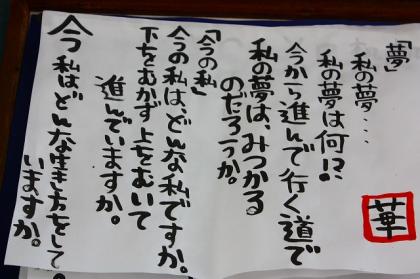 「夢」
私の夢…
私の夢は何!?
今から進んで行く道で
私の夢は、みつかる
のだろうか。
「今の私」
今の私は、どんな私ですか。
下をむかず上をむいて
進んでいますか。
今私は、どんな生き方をして
いますか。
華